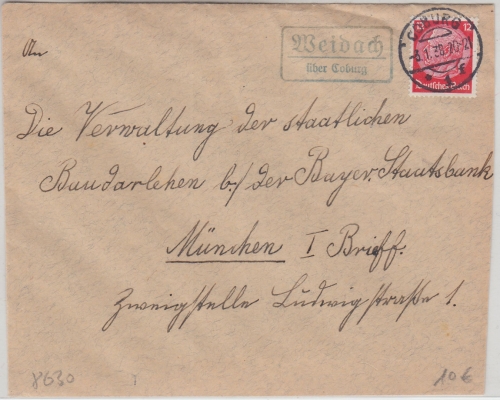 An
Weidach
über Coburg
COBURG
12
-8.1.38.20-21
Deutsches Reich
* 1 f
Die Verwaltung der staatlichen
Baudarlehen b/ der Bayer. Staatsbank
München I Brieff.
Zweigstelle Ludwigstraße 1.
8630
10€